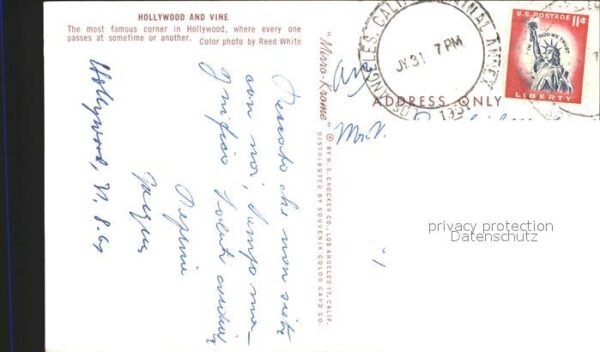 HOLLYWOOD AND VINE
The most famous corner in Hollywood, where every one
passes at sometime or another. Color photo by Reed White
Hollywood,
Peccato che non siete
con noi, tempo ma-
gnifico. Saluti cordiali
Pepine
Jacques
"Mirro-Krome" ® BY H. S. CROCKER CO., LOS ANGELES-17, CALIF.
DISTRIBUTED BY SOUVENIR COLOR CARD CO.
LOS ANGELES, CALIF. TERMINAL ANNEX
JY 31 7 PM
U.S. POSTAGE 11¢
IN GOD WE TRUST
LIBERTY
ADDRESS ONLY
privacy protection
Datenschutz